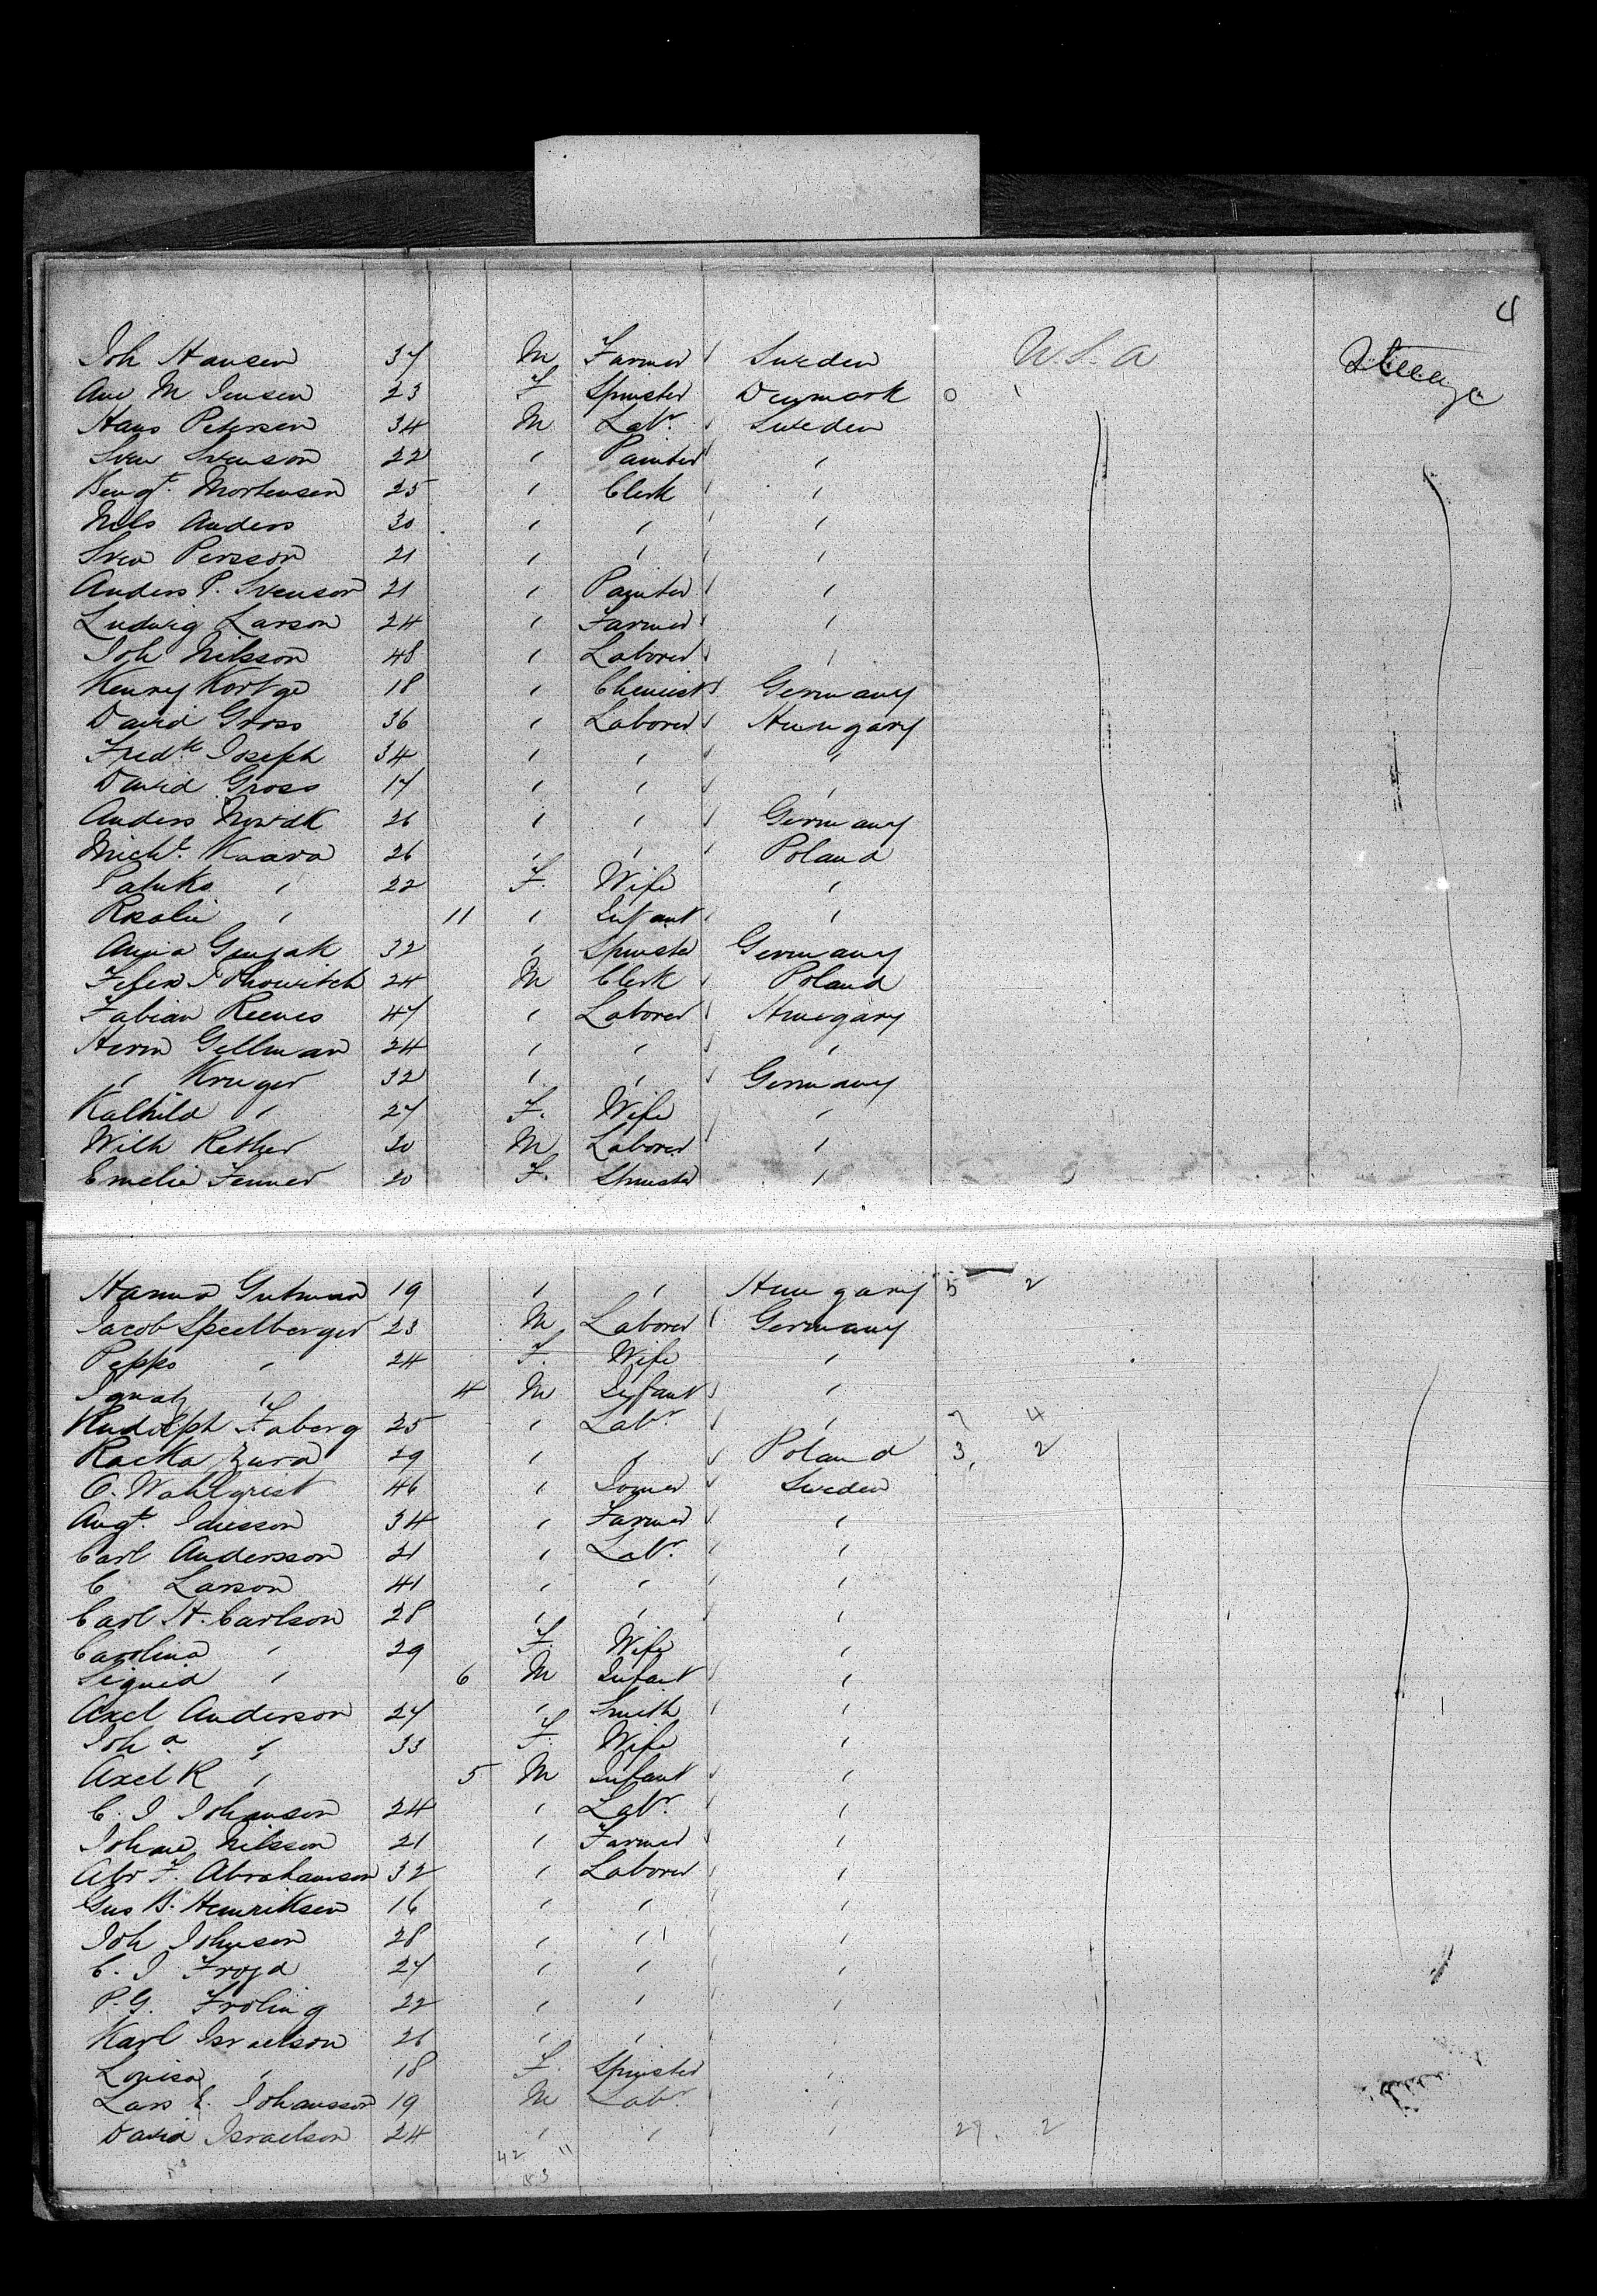 4
Joh Hansen 37 M Farmer Sweden U.S.A Steerage
Ane M Jensen 23 F Spinster Denmark 0 1
Hans Petersen 34 M Labr. Sweden
Sven Svenson 22 " Painter "
Bengt. Mortensen 25 " Clerk "
Nils Anders 30 " " "
Sven Persson 21 " " "
Anders P. Svenson 21 " Painter "
Ludwig Larson 24 " Farmer "
Joh Nilsson 48 " Laborer "
Henry Kortge 18 " Chemist Germany
David Gross 36 " Laborer Hungary
Fredk. Joseph 34 " " "
David Gross 17 " " "
Anders Nowak 26 " " Germany
Michl. Kaava 26 " " Poland
" 22 F. Wife "
Rosalie " 11 " Infant "
Anna 32 " Spinster Germany
24 M Clerk Poland
Fabian Reeves 47 " Laborer Hungary
Herm Gellman 24 " " "
" Kruger 32 " " Germany
Kathild " 27 F. Wife "
Wilh Rether 20 M Laborer "
Emelie Fenner 20 F. Spinster "
Hanna Gutman 19 " " Hungary 5 2
Jacob Speelberger 23 M Laborer Germany
Peppo " 24 F. Wife "
Ignatz " 4 M Infant "
Rudolph Faberg 25 " Labr. " 7 4
Racka Zura 29 " " Poland 3, 2
O. Wahlqrist 46 " Sweden
Augt. 34 " Farmer "
Carl Andersson 21 " Labr. "
C Larson 41 " " "
Carl H. Carlson 28 " " "
Carolina " 29 F. Wife "
Signid " 6 M Infant "
Axel Anderson 27 " Smith "
Joha " 33 F. Wife "
Axel R " 5 M Infant "
C. J Johanson 24 " Labr. "
Johan Nilsson 21 " Farmer "
Abr F. Abrahamson 32 " Laborer "
Gus B. Henriksen 16 " " "
Joh Johnson 28 " " "
C. J Frojd 27 " " "
P. G. Froling 22 " " "
Karl Israelson 26 " " "
Louisa " 18 F. Spinster "
Lars E. Johansson 19 M Labr. "
David Israelson 24 " " " 29. 2
42 11
53